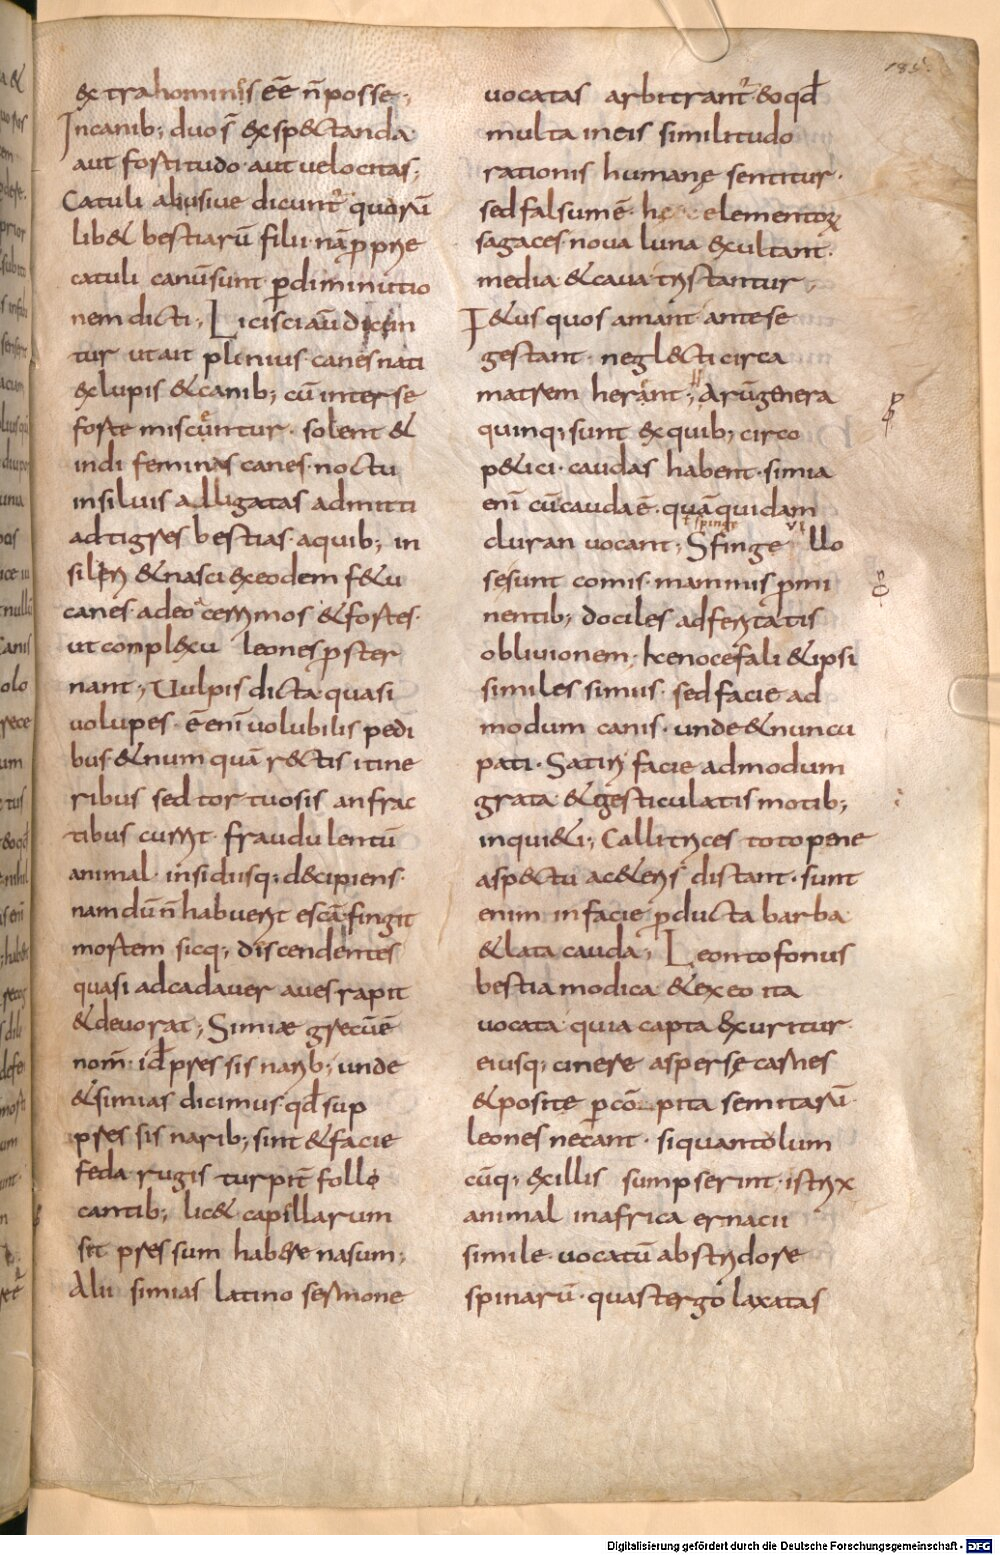 185.
&xtra hominis eē n̄ posse;
Incanib; duo s̄ &xsp&ctanda
aut fortitudo aut uelocitas;
Catuli abusiue dicunt quorū
lib& bestiarū filii nā propriae
catuli canū sunt ꝑ diminutio
nem dicti; Licisci aū dicun
tur ut ait plinius canes nati
&x lupis & canib; cū inter se
forte miscuntur. solent &
indi feminas canes noctu
insiluis adligatas admitti
ad tigres bestias. aquib; in
siliri & nasci &x eodem f&u
canes adeo acerrimos & fortes.
ut complexu leones ꝓster
nant; Uulpis dicta quasi
uolupes. ē enī uolubilis pedi
bus & num quā r&ctis itine
ribus sed tortuosis anfrac
tibus currit. fraudulentū
animal insidiisq; decipiens.
nam dū n̄ habuerit escā fingit
mortem sicq; discendentes
quasi ad cadauer aues rapit
& deuorat; Simiae grecū ē
nom̄ id̄ pressis narib; unde
& simias dicimus qd̄ sup
pressis narib; sint & facie
feda rugis turpit̄ follo
cantib; lic& capillarum
sit pressum habere nasum;
Alii simias latino sermone
uocatas arbitrant & o qd̄
multa in eis similitudo
rationis humanę sentitur.
sed falsum ē. hę elementoꝝ
sagaces noua luna &xultant.
media & caua tristantur;
F&us quos amant ante se
gestant. negl&cti circa
matrem herent; Harū genera
quinq; sunt &x quib; circo
p&ici. caudas habent. simia
enī cū cauda ē. quā quidam
ł spinge
cluran uocant; Sfinge uillo
se sunt comis. mammis ꝓmi
nentib; dociles ad feritatis
obliuionem; kenocefali & ipsi
similes simiis. sed facie ad
modum canis. unde & nuncu
pati. Satiri facie admodum
grata & gesticulatis motib;
inqui&i; Callitrices toto pene
asp&ctu a c&eris distant. sunt
enim in facie ꝓducta barba
& lata cauda; Leontofonus
bestia modica & ex eo ita
uocata quia capta &xuritur.
eiusq; cinere asperse carnes
& posite ꝑ cōpita semitarū
leones necant. si quantolum
cūq; &x illis sumpserint. istrix
animal in africa ernacii
simile. uocatū ab stridore
spinarū. quas tergo laxatas
Digitalisierung gefördert durch die Deutsche Forschungsgemeinschaft - DFG